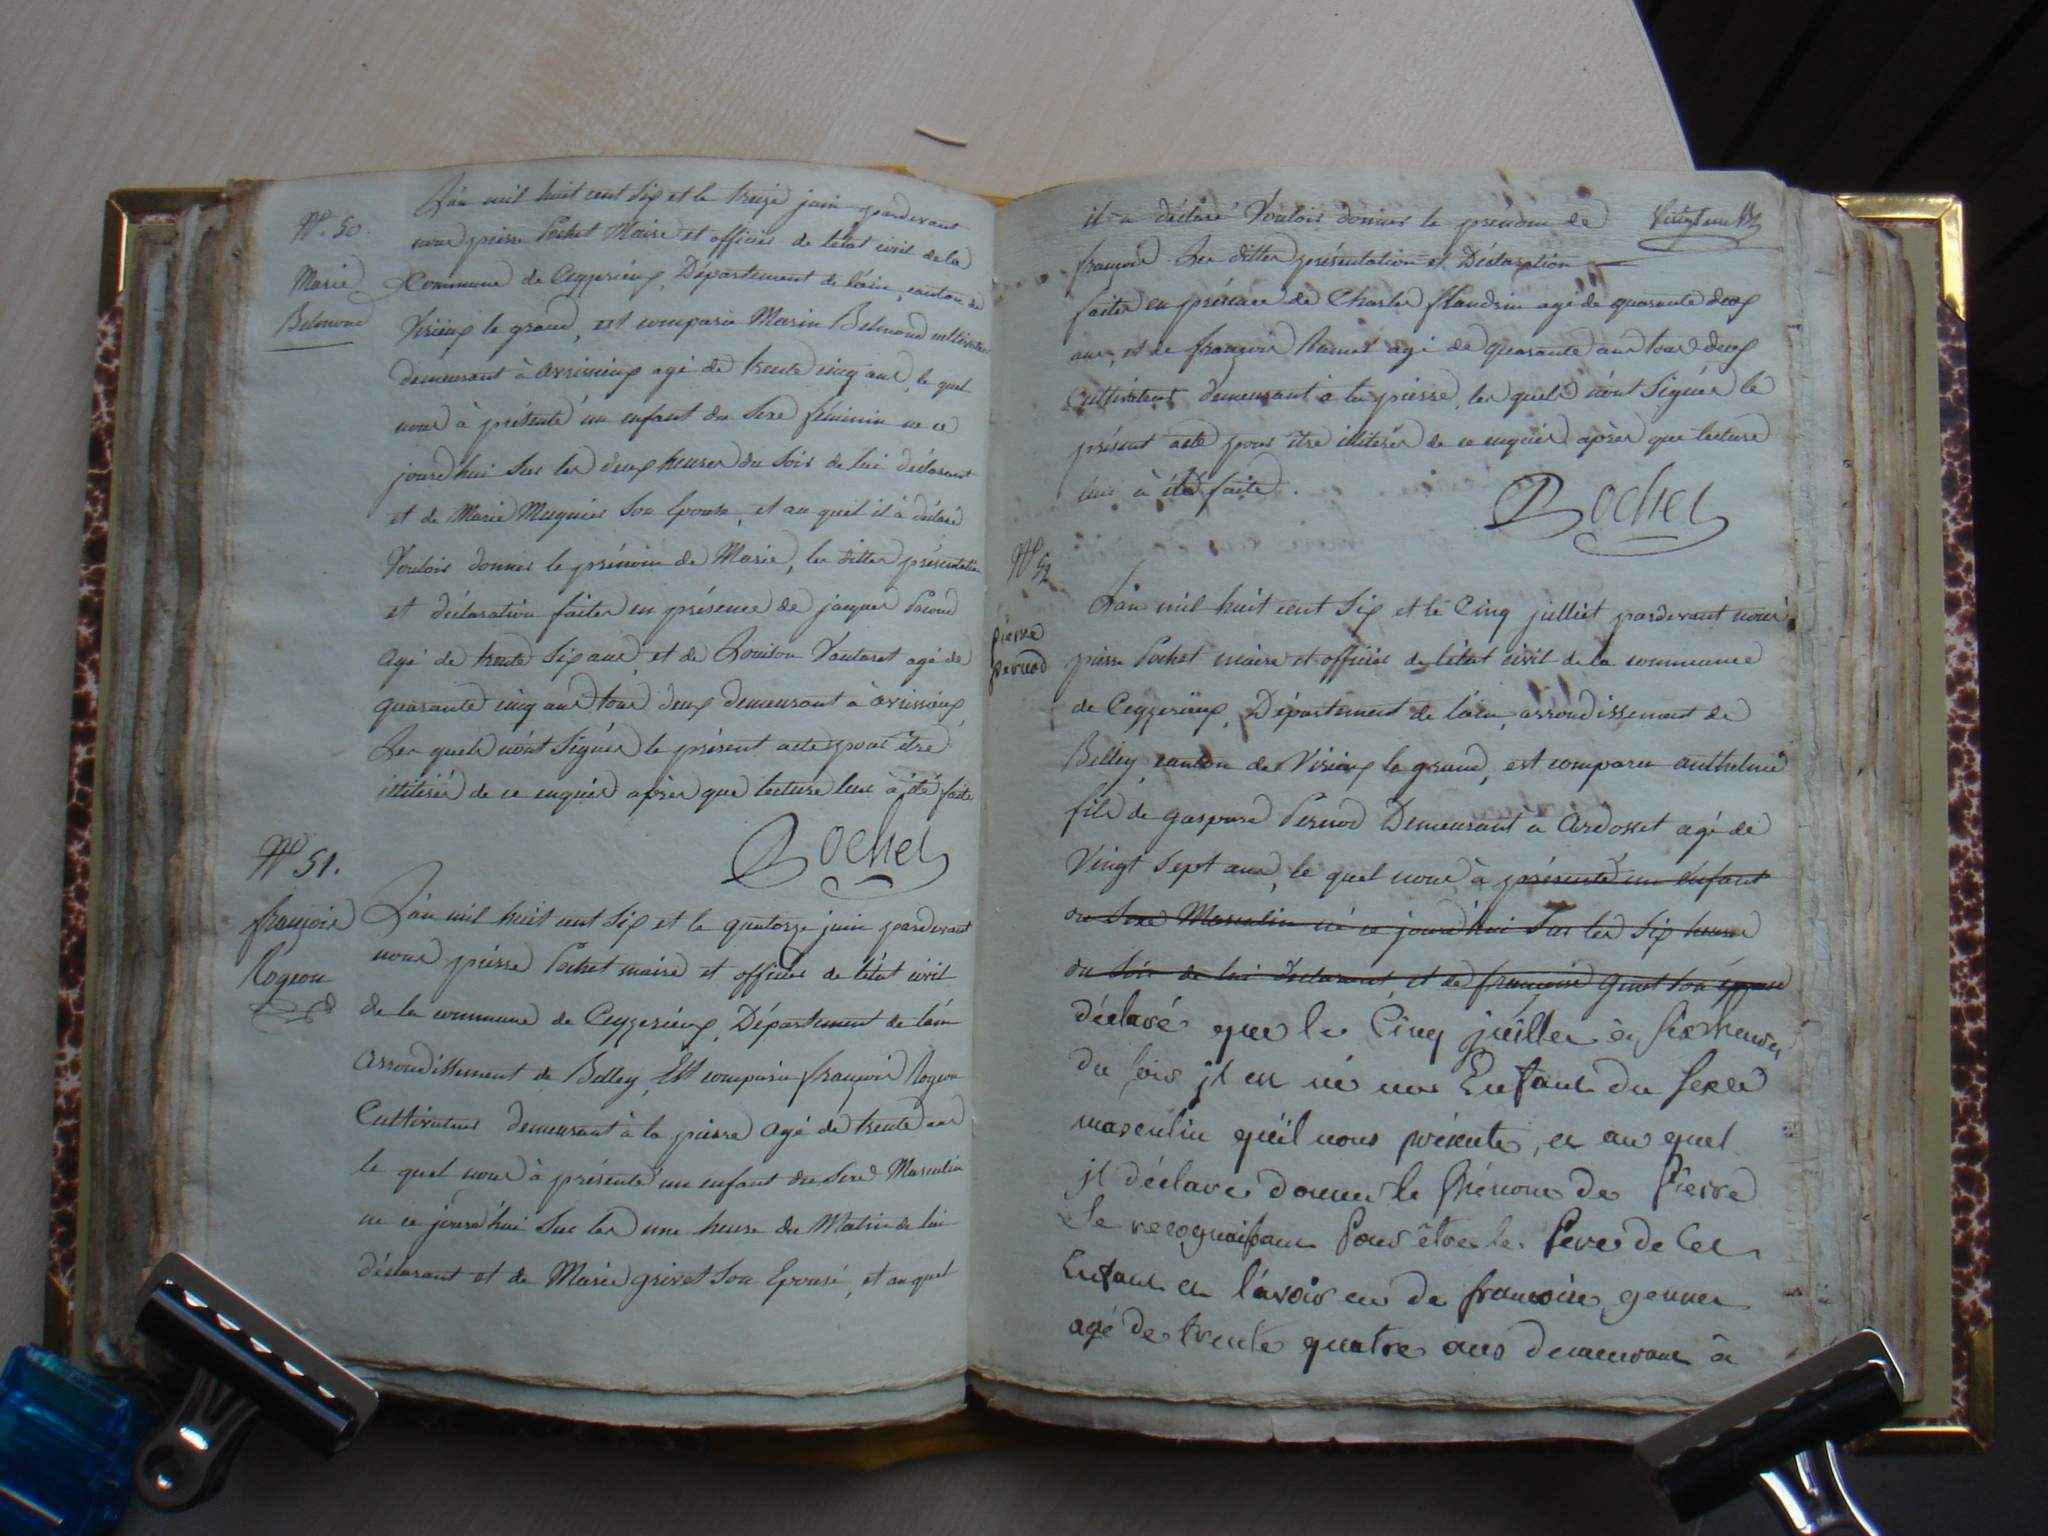 N°. 50.
Marie
Belmond
L'an mil huit cent six et le treize juin pardevant
nous pierre Pochet Maire et officier de l'etat civil de la
Commune de Ceyzerieux, Département de l'ain, canton de
Virieux le grand, est comparu Marin Belmond cultivateur
demeurant à avrissieux agé de trente cinq ans, le quel
nous à présenté un enfant du sexe féminin né ce
jourd'hui sur les deux heures du soir de lui déclarant
et de Marie Mugnier son Epouse, et au quel il à déclaré
Vouloir donner le prénom de Marie, les dittes présentation
et déclaration faites en présence de jacques
agé de trente six ans et de Louison Vautaret agé de
quarante cinq ans tous deux demeurant à avrissieux
Les quels n'ont signés le présent acte pour être
illitérés de ce enquis après que lecture leur à été faite
Pochet
N° 51.
françois
Rogeon
L'an mil huit cent six et le quatorze juin pardevant
nous pierre Pochet maire et officier de l'état civil
de la commune de Ceyzerieux, Département de l'ain
arrondissement de Belley, Est comparu françois Rogeon
Cultivateur demeurant à la pierre agé de trente ans
le quel nous à présenté un enfant du sexe Masculin
né ce jourd'hui sur les une heure du Matin de lui
déclarant et de Marie grivet son Epouse, et au quel
il a déclaré Vouloir donner le prenom de
françois. Les dittes présentation et Déclaration
faites en présence de Charles flandrin agé de quarante deux
ans, et de françois agé de quarante ans tous deux
Cultivateurs demeurant à la pierre, les quels n'ont signés le
présent acte pour être illiterés de ce enquis après que lecture
leur à été faite.
Pochet
N° 52
pierre
pernod
L'an mil huit cent six et le Cinq julliet pardevant nous
pierre Pochet maire et officier de l'état civil de la commune
de Ceyzerieux, Département de l'ain, arrondissement de
Belley, canton de Virieux le grand, est comparu anthelme
fils de gaspard Pernod Demeurant à Ardosset agé de
Vingt sept ans, le quel nous à présenté un enfant
du sexe Masculin né ce jourd'hui sur les six heures
du soir de lui déclarant et de françoise genet son épouse
déclaré que le Cinq juillet à six heures
du soir jl est né un Enfant du sexe
masculin qu'il nous présente, et au quel
jl déclare donner le Prénom de Pierre
Se recognaissant Pour être le Pere de Cet
Enfant et l'avoir eu de francoise genet
agé de trente quatre ans demeurant à